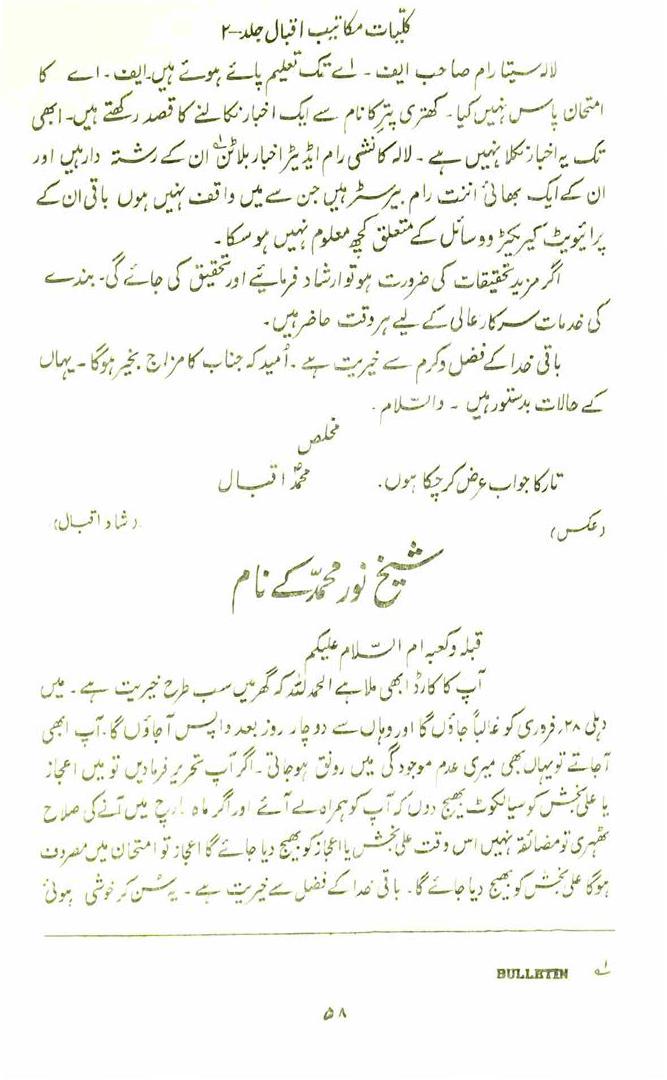 کلیات مکاتیب اقبال جلد-۲
لالہ سیتا رام صاحب ایف - اے تک تعلیم پائے ہوئے ہیں۔ایف - اے کا
امتحان پاس نہیں کیا۔ کھتری پترکا نام سے ایک اخبار نکالنے کا قصد رکھتے ہیں۔ ابھی
تک یہ اخبار نکلا نہیں ہے ۔ لالہ کانشی رام ایڈیٹر اخبار بلاٹن۱؎ ان کے رشتہ دار ہیں اور
ان کے ایک بھائی اننت رام بیرسٹر ہیں جن سے میں واقف نہیں ہوں باقی ان کے
پرائیویٹ کیریکڑ و وسائل کے متعلق کچھ معلوم نہیں ہو سکا۔
اگر مزید تحقیقات کی ضرورت ہو تو ارشاد فرمائیے اور تحقیق کی جائے گی۔ بندے
کی خدمات سرکار عالی کے لیے ہر وقت حاضر ہیں۔
باقی خدا کے فضل و کرم سے خیریت ہے ۔ اُمید کہ جناب کا مزاج بخیر ہوگا ۔ یہاں
کے حالات بدستور ہیں ۔ والسّلام ۔
مخلص
تار کا جواب عرض کر چکا ہوں۔ محمدؐ اقبال
(عکس) (شاد اقبال)
شیخ نور محمدؐ کے نام
قبلہ و کعبہ ام السّلام علیکم
آپ کا کارڈ ابھی ملا ہے الحمد للہ کہ گھر میں سب طرح خیریت ہے ۔ میں
دہلی ۲۸؍ فروری کو غالباً جاؤں گا اور وہاں سے دو چار روز بعد واپس آجاؤں گا۔ آپ ابھی
آجاتے تو یہاں بھی میری عدم موجودگی میں رونق ہو جاتی ۔ اگر آپ تحریر فرمادیں تو میں اعجاز
یا علی بخش کو سیالکوٹ بھیج دوں کہ آپ کو ہمراہ لے آئے اور اگر ماہ مارچ میں آنے کی صلاح
ٹھہری تو مضائقہ نہیں اس وقت علی بخش یا اعجاز کو بھیج دیا جائے گا اعجاز تو امتحان میں مصروف
ہوگا علی بخش کو بھیج دیا جائے گا۔ باقی خدا کے فضل سے خیریت ہے ۔ یہ سُن کر خوشی ہوئی
۱؎ BULLETIN
۵۸